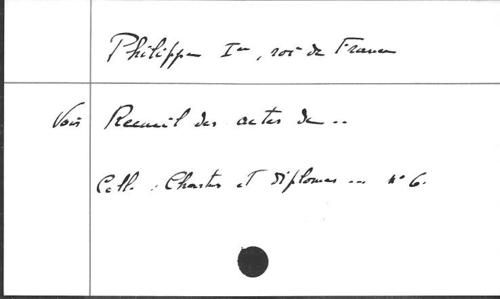 Philippe Ier, roi de France
Voir Recueil des actes de ..
Coll. : Chartes et diplomes ... n° 6.